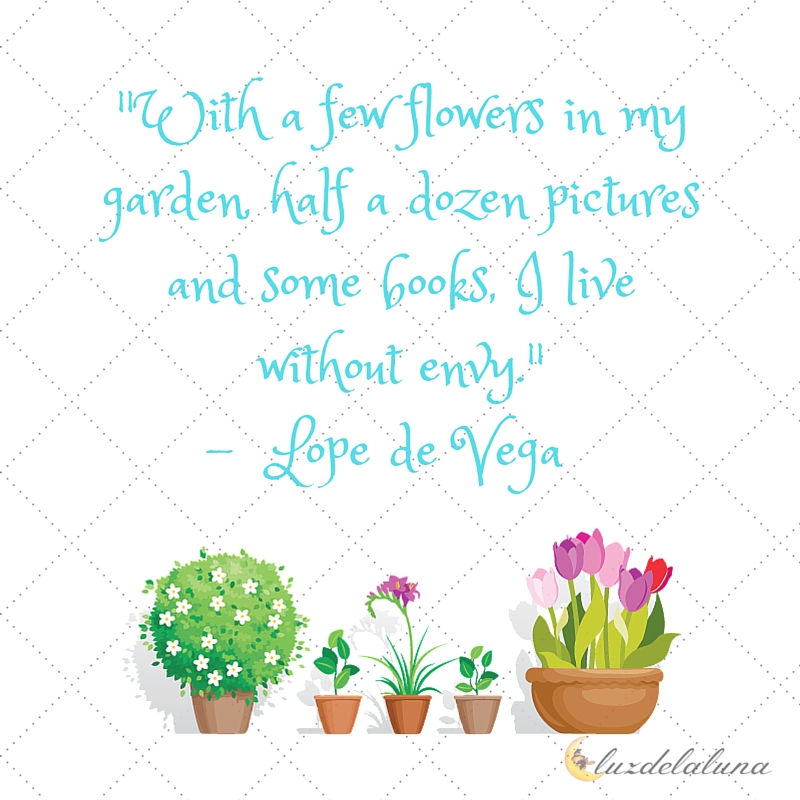 "With a few flowers in my
garden, half a dozen pictures
and some books, I live
without envy."
– Lope de Vega
luzdelaluna